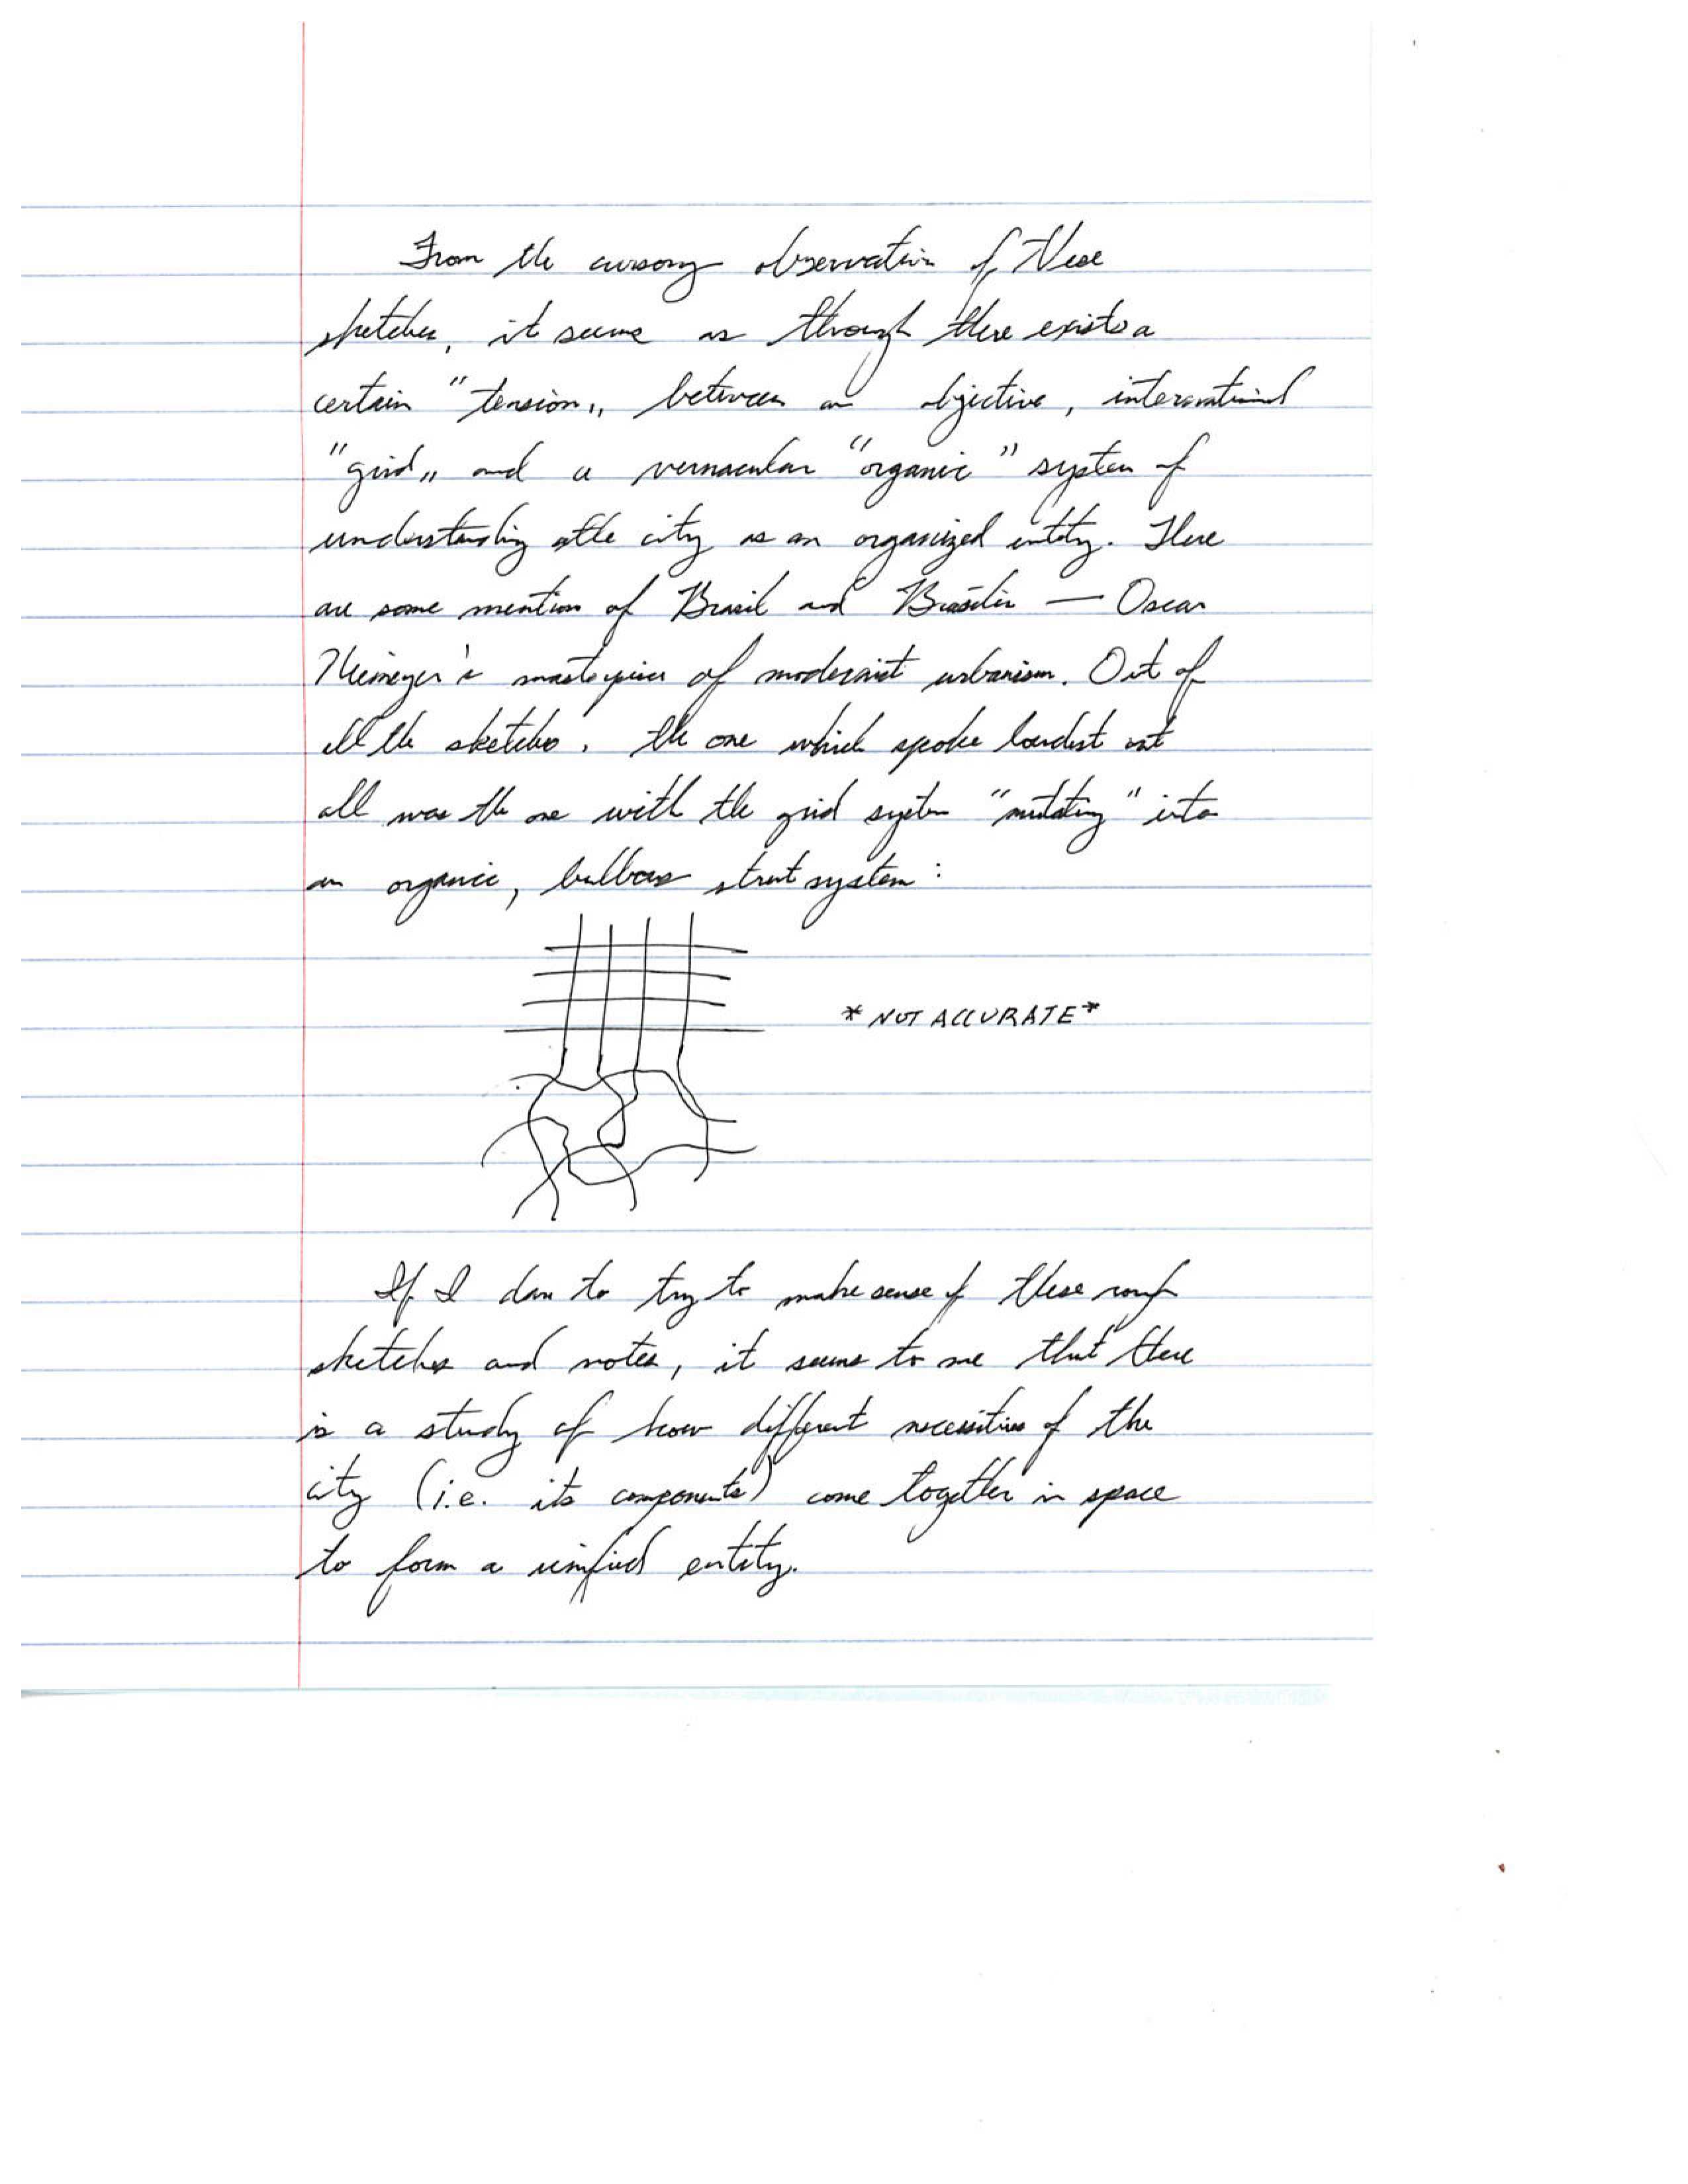 From the cursory observation of these
sketches, it seems as through there exists a
certain "tension„ between an objective, international
"grid„ and a vernacular "organic" system of
understanding of the city as an organized entity. There
are some mention of Brasil and Brasília — Oscar
Niemeyer's masterpiece of modernist urbanism. Out of
all the sketches, the one which spoke loudest out
all was the one with the grid system "mutating" into
an organic, bulbous street system:
*NOT ACCURATE*
If I dare to try to make sense of these rough
sketches and notes, it seems to me that there
is a study of how different necessities of the
city (i.e. its components) come together in space
to form a unified entity.